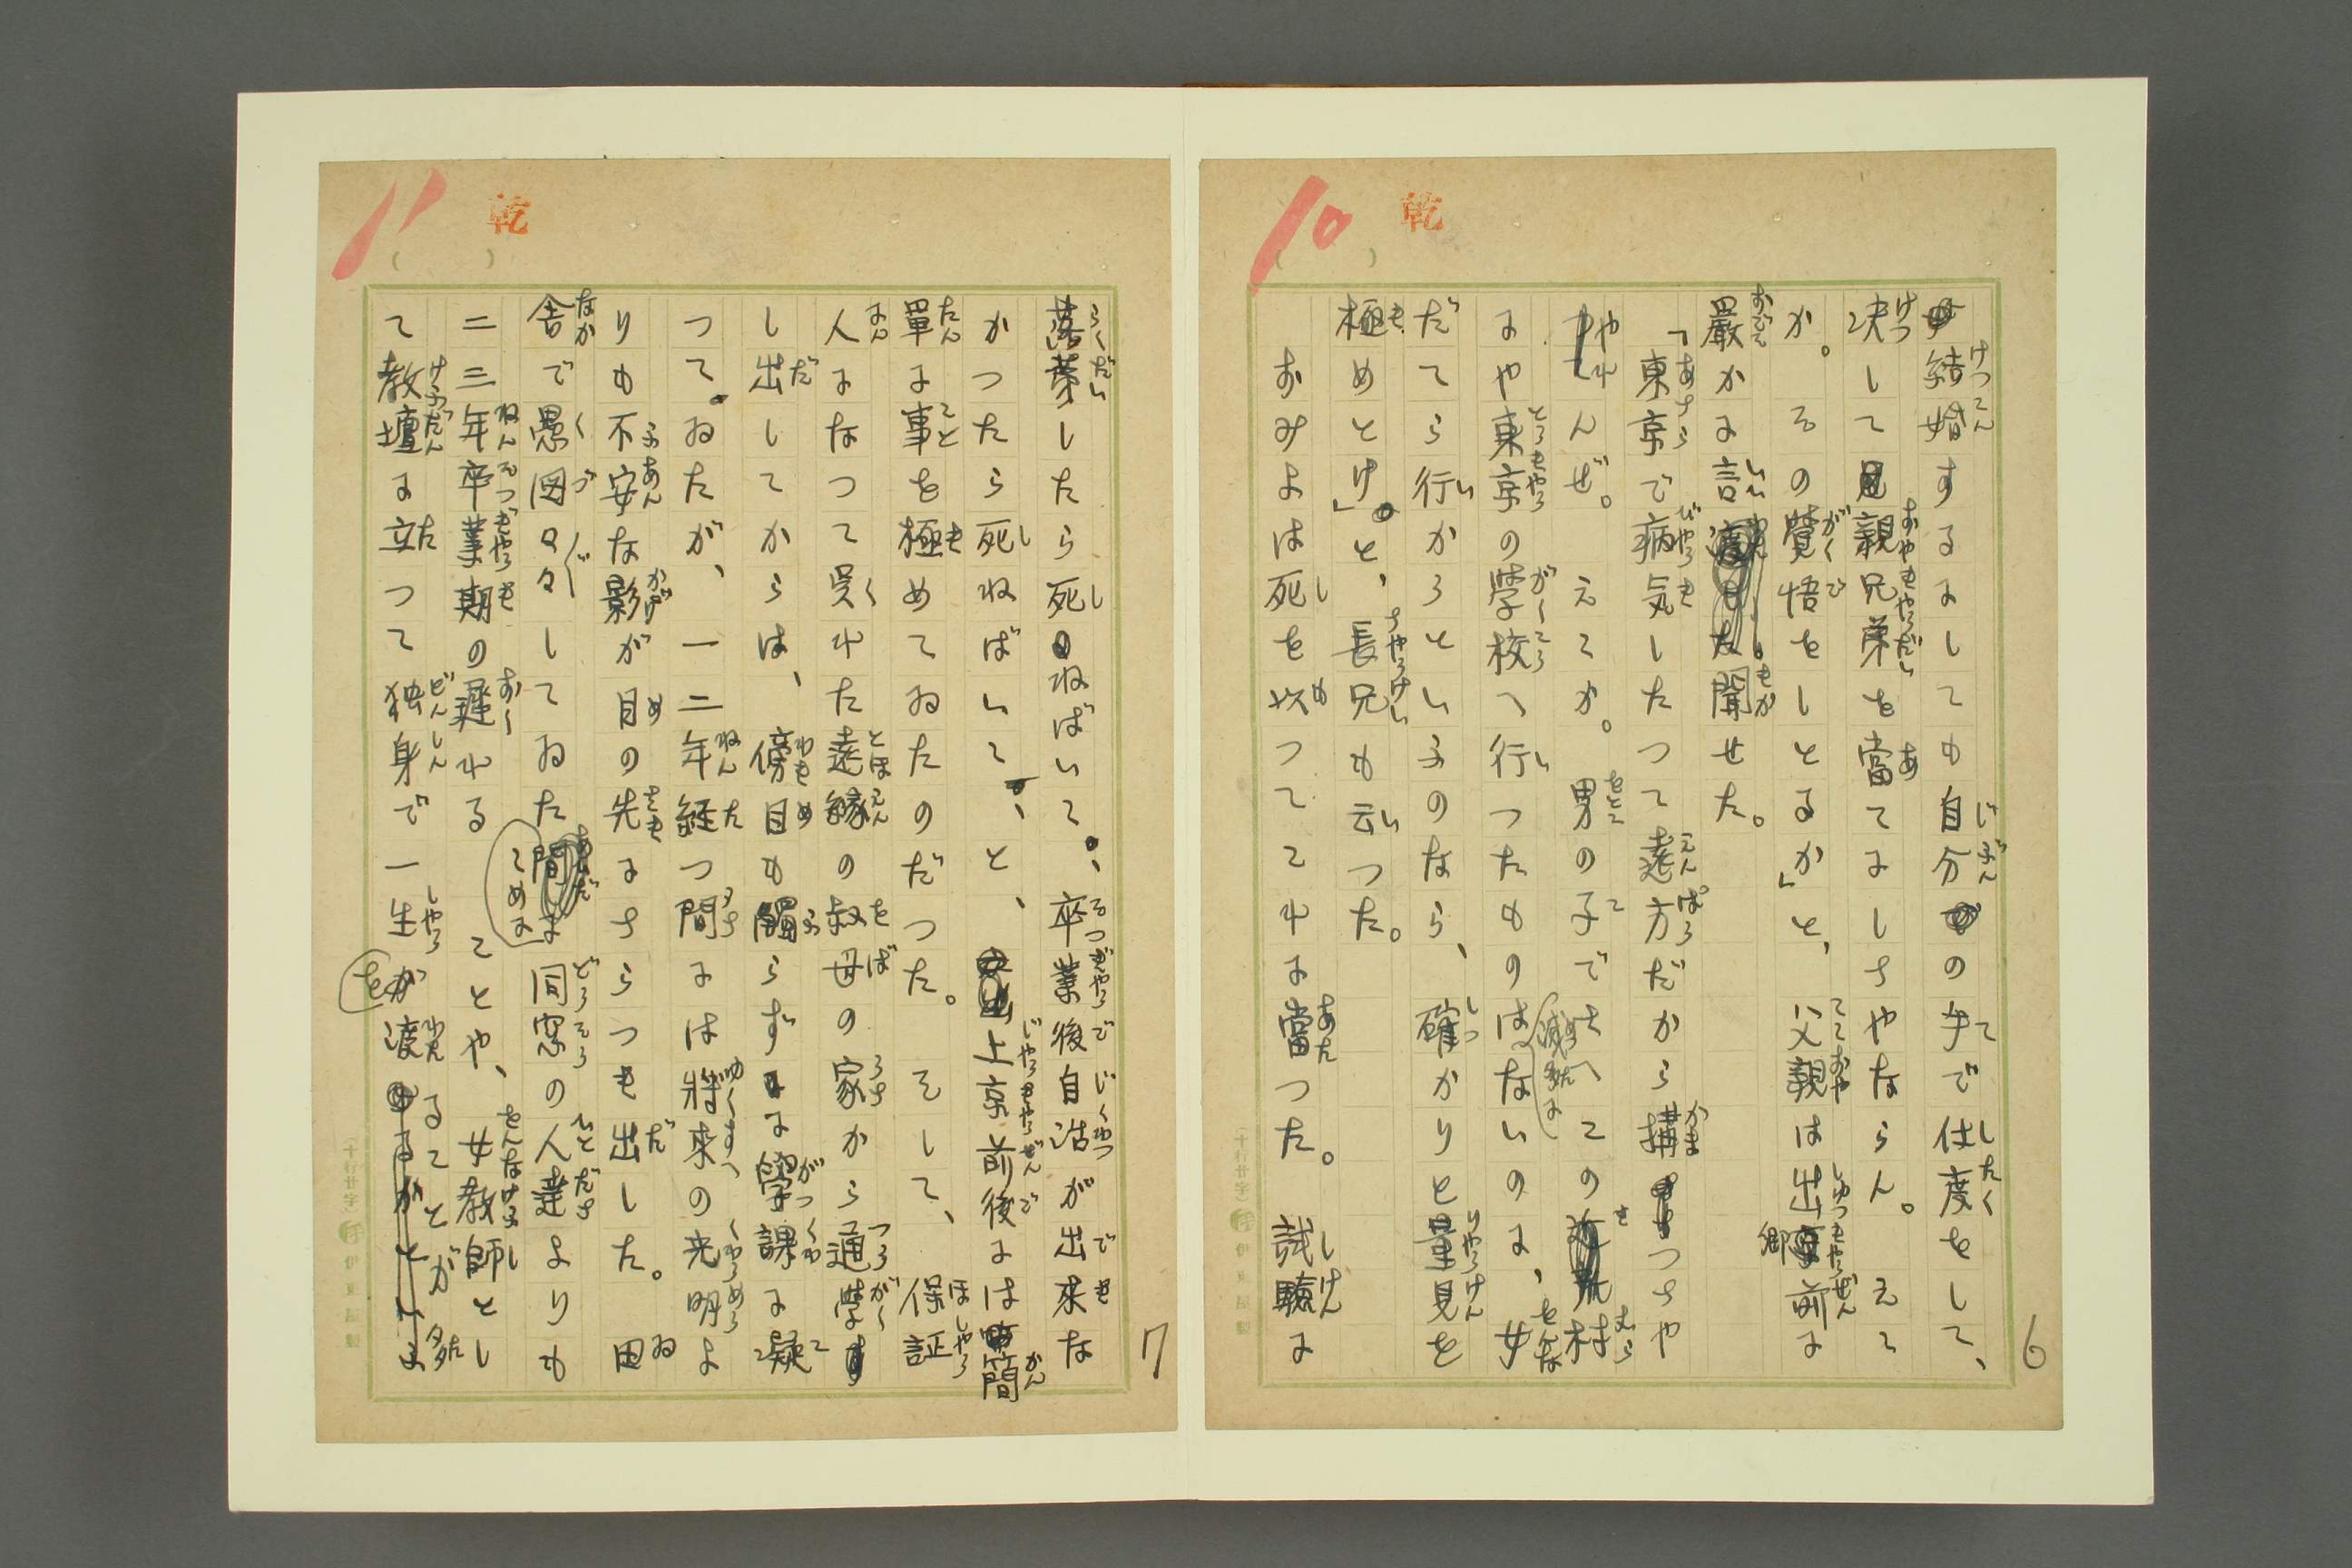 乾
10
6
結婚するにしても自分の手で仕度をして、
決して親兄弟を當てにしちやならん。えゝ
か。その覺悟をしとるか」と、父親は出郷前に
嚴かに言聞せた。
「東京で病気したつて遠方だから構つちや
やれんぜ。えゝか。男の子でせへこの村
ぢや東京の学校へ行つたものは滅多にないのに、女
だてら行かうといふのなら、確かりと量見を
極めとけ」と、長兄も云つた。
おみよは死を以つてこれに當つた。試驗に
乾
11
7
落第したら死ねばいゝ、卒業後自活が出来な
かつたら死ねばいゝ、と、上京前後には簡
單に事を極めてゐたのだつた。そして、保証
人になつて呉れた遠縁の叔母の家から通学
し出してからは、傍目も觸らずに学課に凝
つてゐたが、一二年経つ間には将来の光明よ
りも不安な影が目の先にちらつき出した。田
舎で愚図々々してゐたゝめに同窓の人達よりも
二三年卒業期の遅れることや、女教師とし
て教壇に立つて独身で一生を渡ることが多